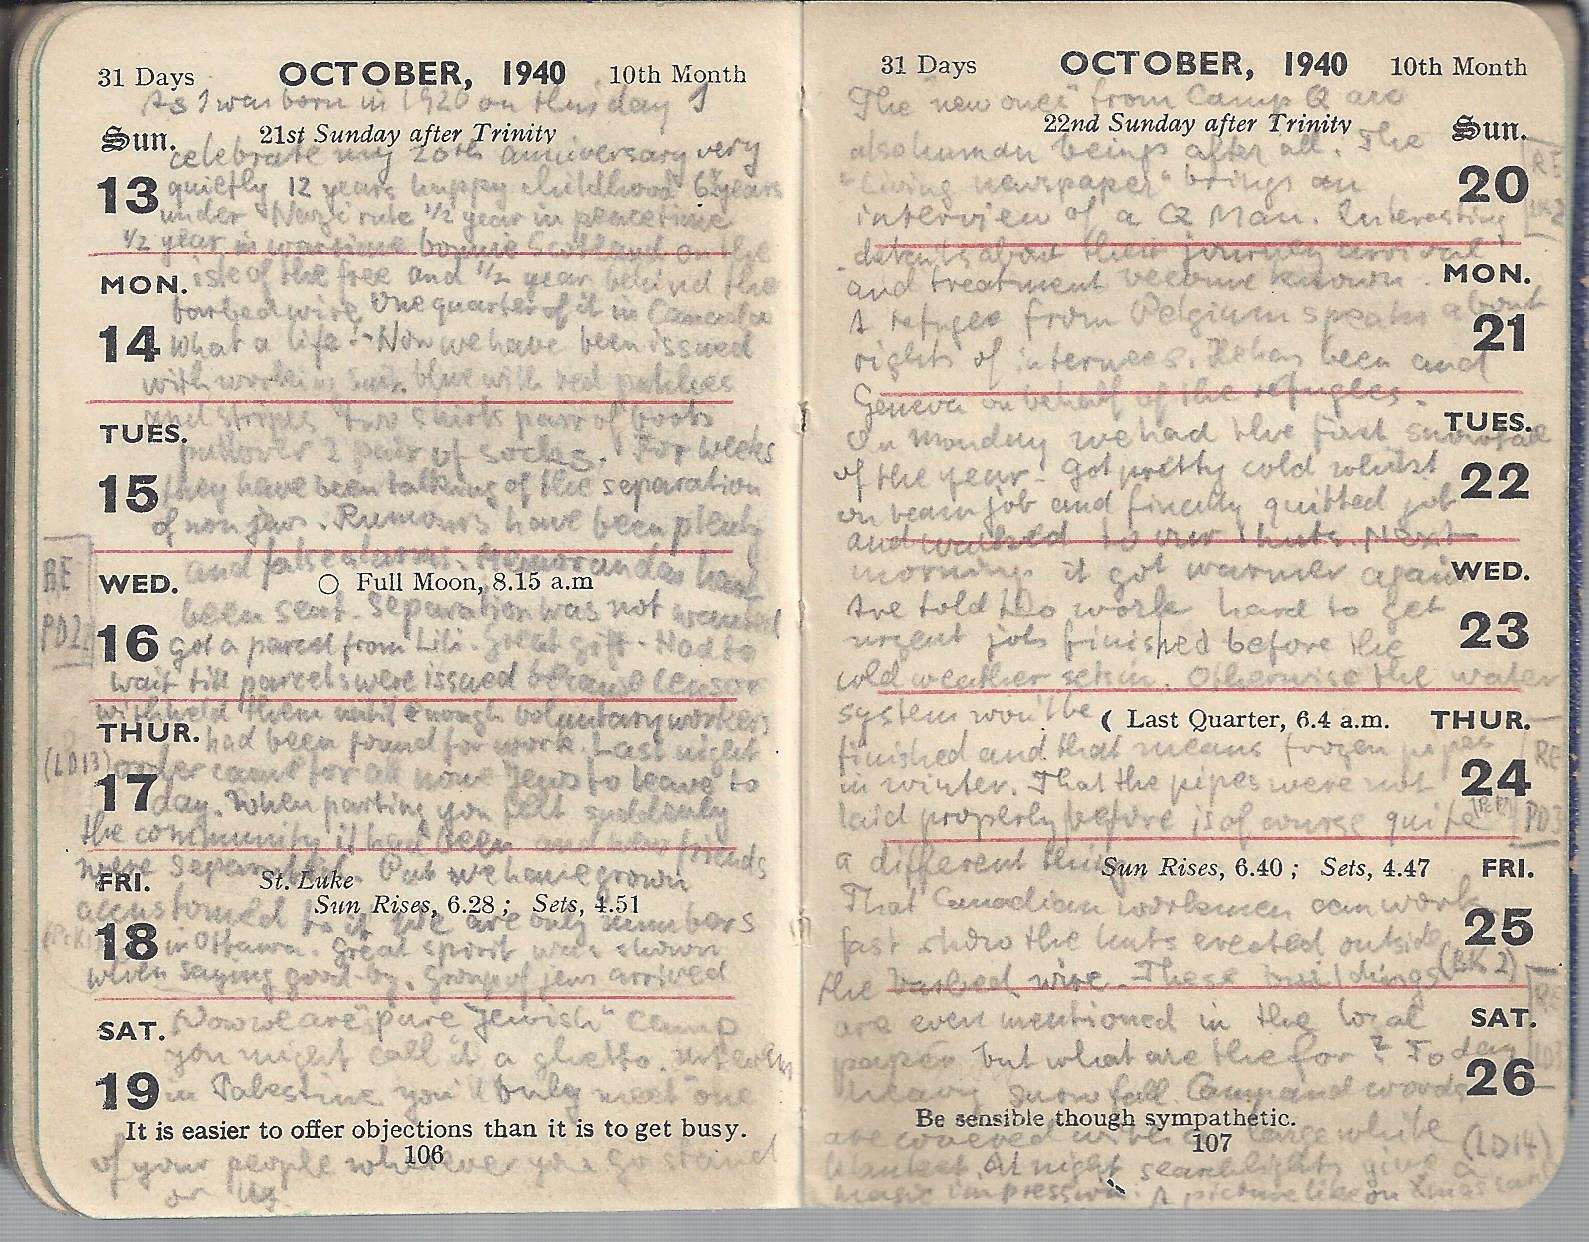 31 Days OCTOBER, 1940 10th Month
As I was born in 1920 on this day I
Sun. 21st Sunday after Trinity
celebrate my 20th anniversary very
13 quietly 12 years happy childhood 6½ years
under Nazi rule ½ year in peacetime
½ year in wartime bonnie Scotland on the
MON. isle of the free and ½ year behind the
barbed wire. One quarter of it in Canada
14 What a life! - Now we have been issued
with working suit. blue with red patches
and stripes two shirts pair of boots
TUES. pullover 2 pair of socks. For weeks
15 they have been talking of the separation
of non jews. Rumours have been plenty
and false alarms. Memorandas have
WED. Full Moon, 8.15 a.m
been sent. Separation was not wanted
16 got a parcel from Lili. Great gift. Had to
wait till parcels were issued because censor
withheld them until enough voluntary workers
THUR. had been found for work. Last night
(LD13) order came for all none Jews to leave to
17 day. When parting you felt suddenly
the community it had been and new friends
were separated. But we have grown
FRI. St. Luke
Sun Rises, 6.28 ; Sets, 4.51
accustomed to it we are only numbers
18 in Ottawa. Great spirit was shown
when saying good-by. Group of jews arrived
SAT. Now we are "pure Jewish" camp
you might call it a ghetto. Not even
19 in Palestine you'll only meet one
It is easier to offer objections than it is to get busy.
106
of your people wherever you go stand
or
RE
PD2
31 Days OCTOBER, 1940 10th Month
The "new ones" from Camp Q are
22nd Sunday after Trinity Sun.
also human beings after all. The
"Living newspaper" brings an 20
interview of a Q Man. Interesting
details about their journey arrival
and treatment become known. MON.
A refugee from Belgium speaks about 21
rights of internees. He has been and
Geneva on behalf of the refugees.
On Monday we had the first snowfall TUES.
of the year. Got pretty cold whilst 22
on beam job and finally quitted job
and walked to our huts. Next
morning it got warmer again WED.
Are told to work hard to get 23
urgent job finished before the
cold weather sets in. Otherwise the water
system won't be ( Last Quarter, 6.4 a.m. THUR.
finished and that means frozen pipes
in winter. That the pipes were not 24
laid properly before is of course quite
a different thing. Sun Rises, 6.40 ; Sets, 4.47 FRI.
That Canadian workmen can work
fast show the huts erected outside 25
the barbed wire. These buildings
are even mentioned in the local SAT.
paper, but what are the for? Today
heavy snowfall. Camp and woods 26
Be sensible though sympathetic.
107
are covered with a large white (LD14)
blanket. At night searchlights give a
magic impression. A picture like on Xmas card
RE
RE
PD3
(BK2)